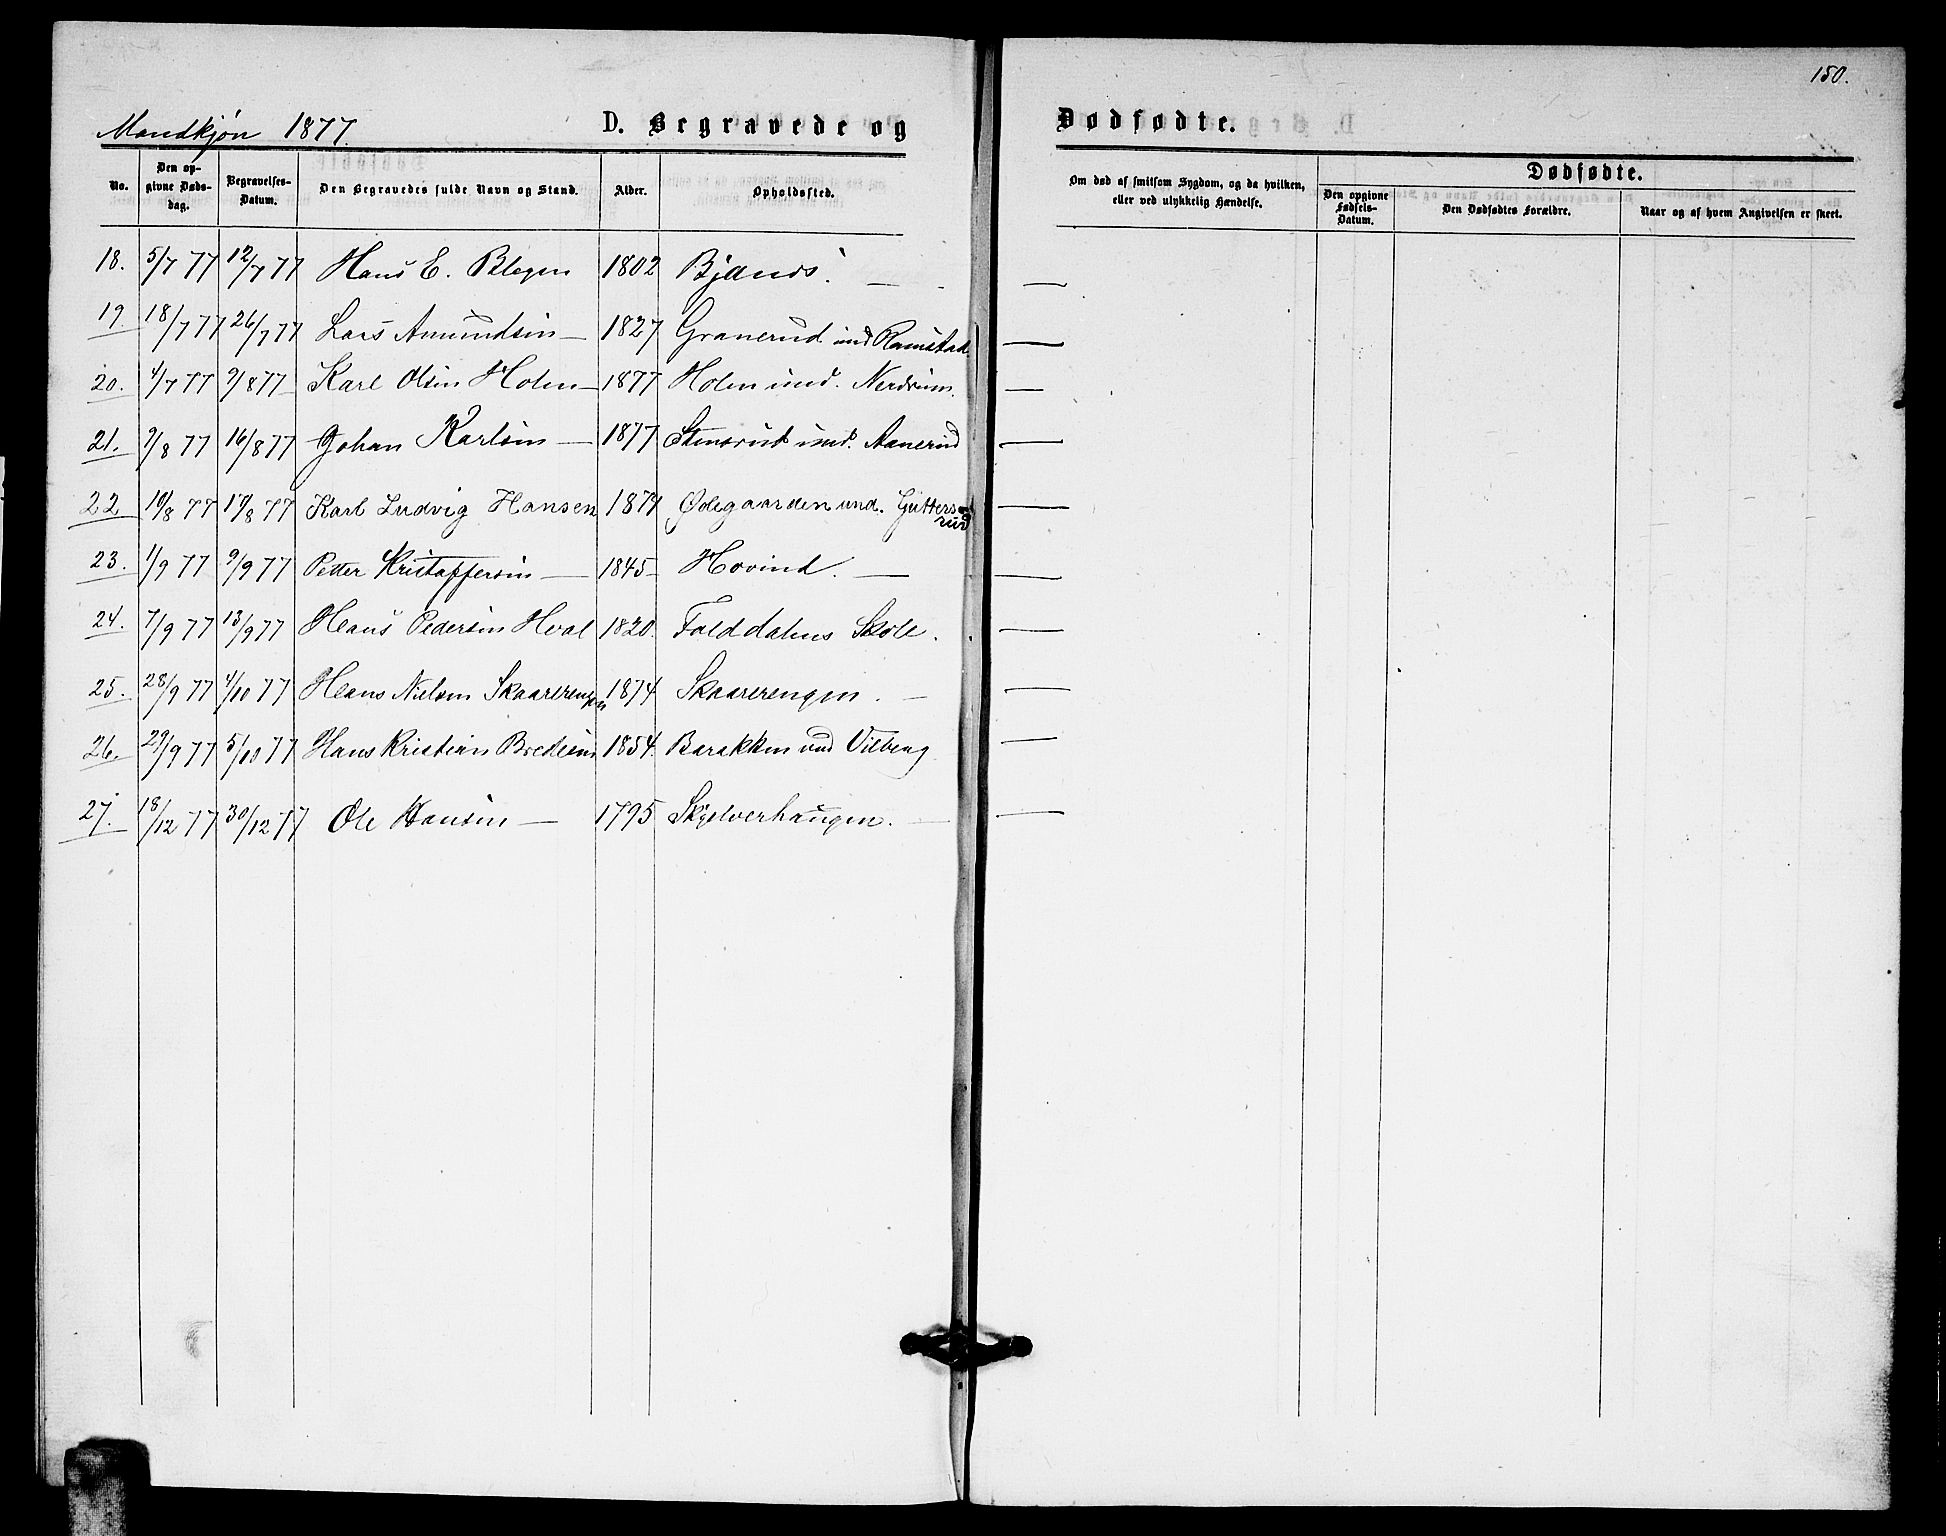 150.
Mandkjøn 1877.
D. Begravede og Dødfødte.
No. Den opgivne Dødsdag. Begravelses-Datum. Den Begravedes fulde Navn og Stand. Alder. Opholdssted. Om død af smitsom Sygdom, og da hvilken, eller ved ulykkelig Hændelse. Dødfødte. Den opgivne Fødsels-Datum. Den Dødfødtes Forældre. Naar og af hvem Angivelsen er skeet.
18. 5/7 77 12/7 77 Hans E. Blegen 1802 Bjanes. —
19. 18/7 77 26/7 77 Lars Amundsen — 1827 Granerud und Ramstad. —
20. 4/7 77 9/8 77 Karl Olsen Holen — 1877 Holen und. Nerdrum. —
21. 9/8 77 16/8 77 Johan Karlsen — 1877 Stensrud und. Aanerud —
22 10/8 77 17/8 77 Karl Ludvig Hansen 1877 Ødegaarden und. Guttersrud —
23. 1/9 77 9/9 77 Petter Kristoffersen — 1845 Hovind. — —
24. 7/9 77 13/9 77 Hans Pedersen Hval 1820. Folddalens Skole. —
25. 28/9 77 4/10 77 Hans Nielsen Skaarerengen 1874 Skaarerengen. — —
26. 29/9 77 5/10 77 Hans Kristian Bredesen 1854. Barakken und Vilberg —
27. 18/12 77 30/12 77 Ole Hansen — 1795 Skjelverhaugen. — —